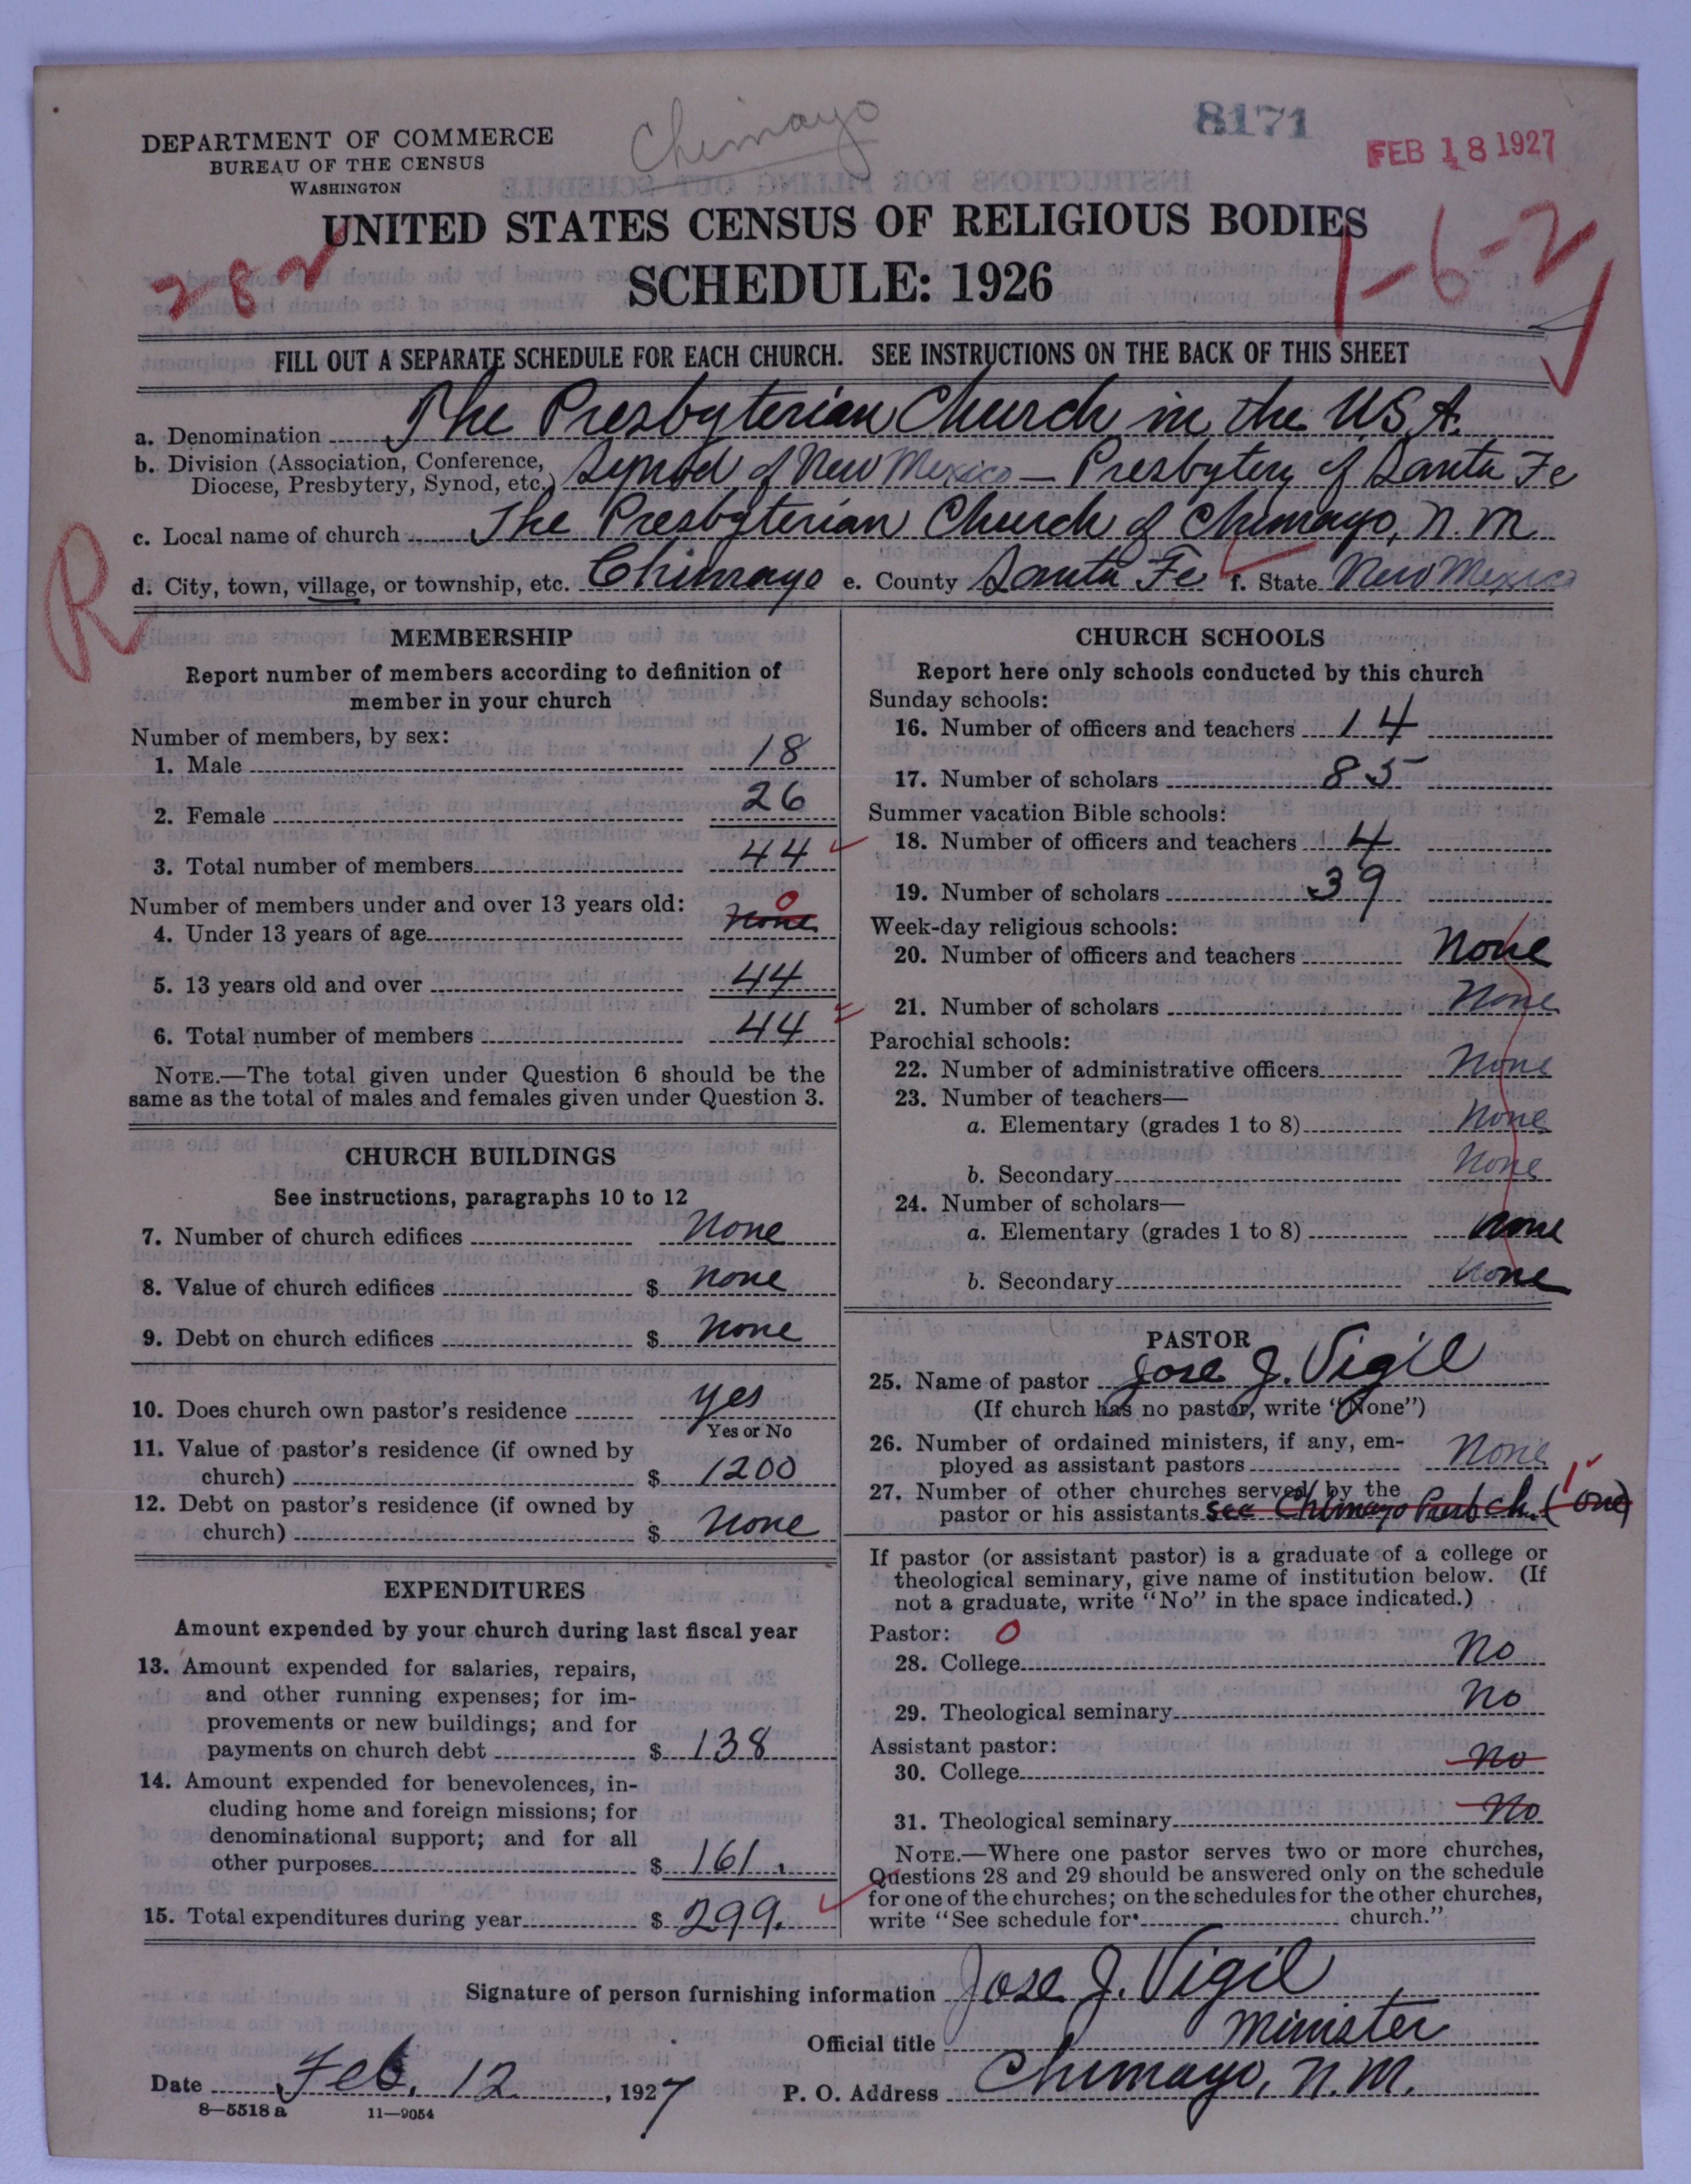 Chimayo
8171
DEPARTMENT OF COMMERCE
BUREAU OF THE CENSUS
WASHINGTON
FEB 18 1927
UNITED STATES CENSUS OF RELIGIOUS BODIES
SCHEDULE: 1926
282
1-6-2
FILL OUT A SEPARATE SCHEDULE FOR EACH CHURCH. SEE INSTRUCTIONS ON THE BACK OF THIS SHEET
a. Denomination The Presbyterian Church in the U.S.A.
b. Division (Association, Conference,
Diocese, Presbytery, Synod, etc.) Synod of New Mexico — Presbytery of Santa Fe
c. Local name of church The Presbyterian Church of Chimayo, N.M.
R
d. City, town, village, or township, etc. Chimayo e. County Santa Fe f. State New Mexico
MEMBERSHIP
Report number of members according to definition of
member in your church
Number of members, by sex:
1. Male 18
2. Female 26
3. Total number of members 44
Number of members under and over 13 years old:
4. Under 13 years of age none 0
5. 13 years old and over 44
6. Total number of members 44
NOTE.—The total given under Question 6 should be the
same as the total of males and females given under Question 3.
CHURCH BUILDINGS
See instructions, paragraphs 10 to 12
7. Number of church edifices None
8. Value of church edifices $ none
9. Debt on church edifices $ none
10. Does church own pastor's residence yes
Yes or No
11. Value of pastor's residence (if owned by
church) $ 1200
12. Debt on pastor's residence (if owned by
church) $ none
EXPENDITURES
Amount expended by your church during last fiscal year
13. Amount expended for salaries, repairs,
and other running expenses; for im-
provements or new buildings; and for
payments on church debt $ 138
14. Amount expended for benevolences, in-
cluding home and foreign missions; for
denominational support; and for all
other purposes $ 161.
15. Total expenditures during year $ 299.
CHURCH SCHOOLS
Report here only schools conducted by this church
Sunday schools:
16. Number of officers and teachers 14
17. Number of scholars 85
Summer vacation Bible schools:
18. Number of officers and teachers 4
19. Number of scholars 39
Week-day religious schools:
20. Number of officers and teachers None
21. Number of scholars None
Parochial schools:
22. Number of administrative officers None
23. Number of teachers—
a. Elementary (grades 1 to 8) None
b. Secondary None
24. Number of scholars—
a. Elementary (grades 1 to 8) none
b. Secondary none
PASTOR
25. Name of pastor Jose J. Vigil
(If church has no pastor, write "None")
26. Number of ordained ministers, if any, em-
ployed as assistant pastors None
27. Number of other churches served by the 1
pastor or his assistants see Chimayo Presb Ch. (one)
If pastor (or assistant pastor) is a graduate of a college or
theological seminary, give name of institution below. (If
not a graduate, write "No" in the space indicated.)
Pastor: 0
28. College No
29. Theological seminary No
Assistant pastor:
30. College No
31. Theological seminary No
NOTE.—Where one pastor serves two or more churches,
Questions 28 and 29 should be answered only on the schedule
for one of the churches; on the schedules for the other churches,
write "See schedule for church."
Signature of person furnishing information Jose J. Vigil
Official title Minister
Date Feb. 12, 1927 P. O. Address Chimayo, N.M.
8—5518 a 11—9054